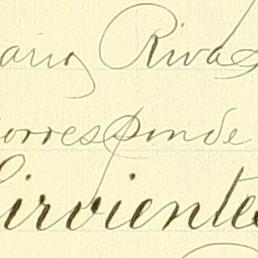 ario Rivas
orresponde
irvientes